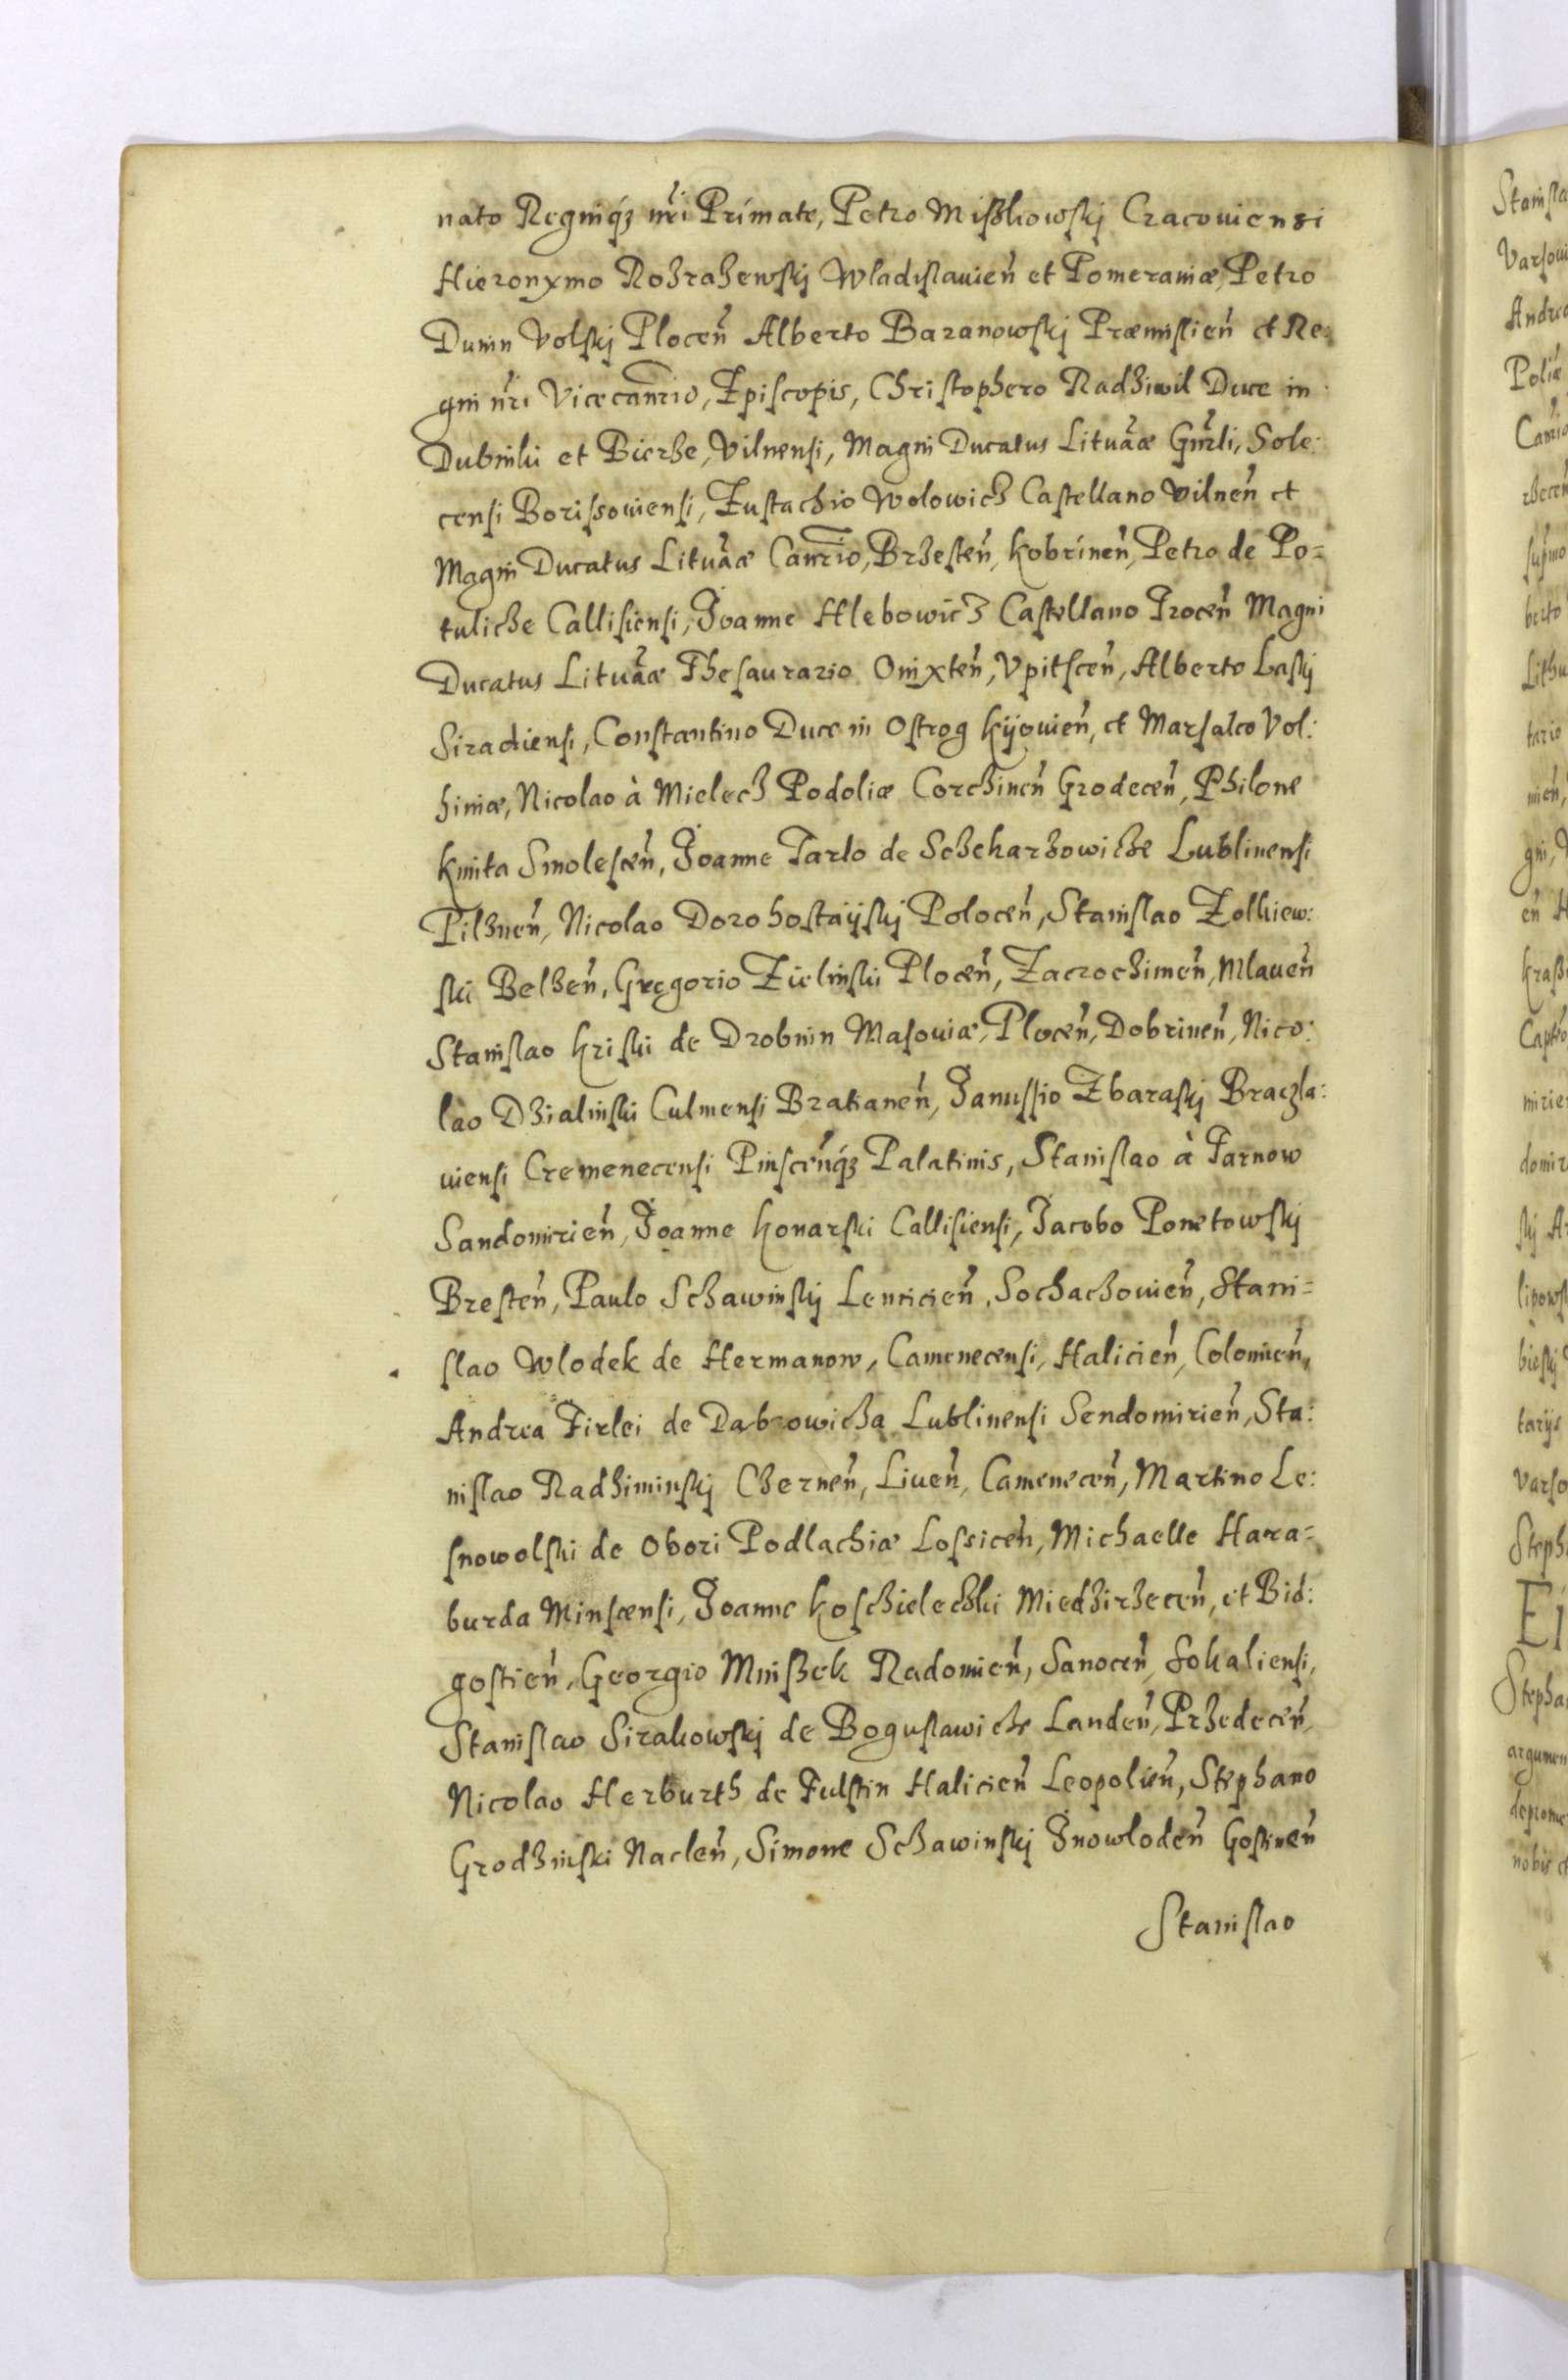 nato Regniq́ʒ nr̃i Primate, Petro Mißkowskj Cracouiensi
Hieronymo Rozrazewskj Wladislauien̄ et Pomeraniæ, Petro
Dunin Volskj Plocen̄ Alberto Baranowskj Præmislien̄ et Re:
gni nr̃i Vicecanr̃io, Episcopis, Christophero Radziwil Duce in
Dubinki et Bierze, Vilnensi, Magni Ducatus Lituãæ Gnr̃li, Sole:
censi Borissouiensi, Eustachio Wolowicz Castellano Vilnen̄ et
Magni Ducatus Lituãæ Canr̃io, Brzesten̄, Kobrinen̄, Petro de Po=
tulicze Callisiensi, Joanne Hlebowicz Castellano Trocen̄ Magni
Ducatus Lituãæ Thesaurario Onixten̄, Vpitscen̄, Alberto Laskj
Siradiensi, Constantino Duce in Ostrog Kijouien̄, et Marsalco Vol:
hiniæ, Nicolao à Mielecz Podoliæ Corczinen̄ Grodecen̄, Philone
Kmita Smolescen̄, Joanne Tarlo de Sczekarzowicze Lublinensi
Pilznen̄, Nicolao Dorohostaijskj Polocen̄, Stanislao Zolkiew:
ski Belzen̄, Gregorio Zielinski Plocen̄, Zacrocзimen̄, Mlauen̄
Stanislao Kriski de Drobnin Masouiæ, Plocen̄, Dobrinen̄, Nico:
lao Dzialinski Culmensi Bratianen̄, Janussio Zbaraskj Braczla:
uiensi Cremenecensi Pinscen̄q́ʒ Palatinis, Stanislao à Tarnow
Sandomirien̄, Joanne Konarski Callisiensi, Jacobo Ponetowskj
Bresten̄, Paulo Sczawinskj Lencicien̄, Sochaczouien̄, Stani=
slao Wlodek de Hermanow, Camenecensi, Halicien̄, Colomien̄,
Andrea Firlei de Dabrowicza Lublinensi Sendomirien̄, Sta:
nislao Radziminskj Czernen̄, Liuen̄, Camenecen̄, Martino Le:
snowolski de Obori Podlachiæ Lossicen̄, Michaelle Hara=
burda Minscensi, Joanne Koscielecзki Miedzirzecen̄, et Bid:
gostien̄, Georgio Mnißek Radomien̄, Sanocen̄, Sokaliensi,
Stanislao Sirakowskj de Boguslawicze Landen̄, Przedecen̄,
Nicolao Herburth de Fulstin Halicien̄ Leopolien̄, Stephano
Grodzinski Naclen̄, Simone Sczawinskj Jnowloden̄ Gostinen̄
Stanislao